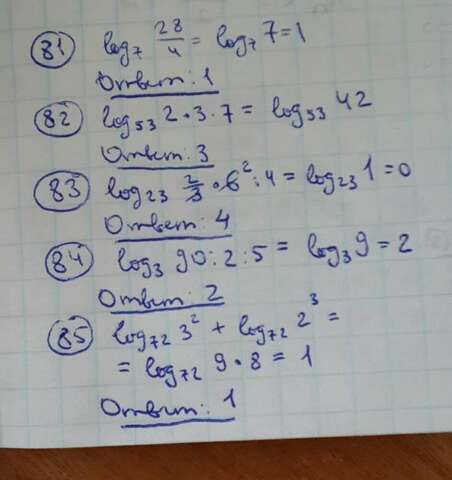 81 log₇ 28/4 = log₇ 7 = 1
Ответ: 1
82 log₅₃ 2 • 3 • 7 = log₅₃ 42
Ответ: 3
83 log₂₃ 2/3 • 6² : 4 = log₂₃ 1 = 0
Ответ: 4
84 log₃ 90 : 2 : 5 = log₃ 9 = 2
Ответ: 2
85 log₇₂ 3² + log₇₂ 2³ =
= log₇₂ 9 • 8 = 1
Ответ: 1